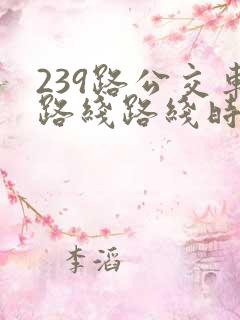 239路公交車
路綫路綫時
李滔